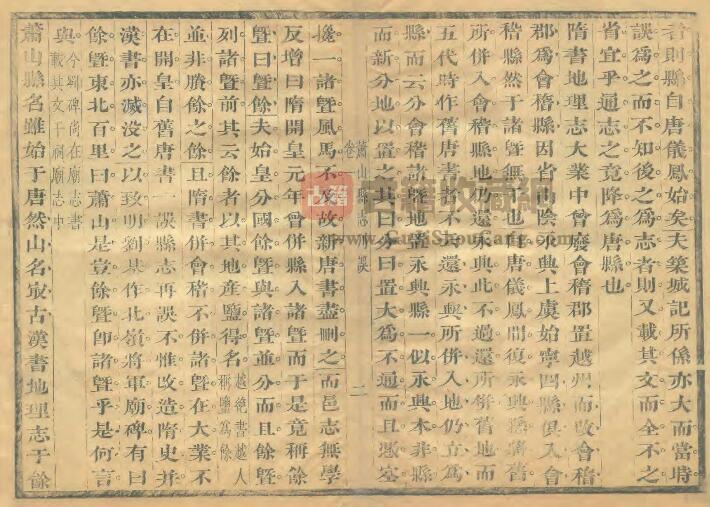 者則縣自唐儀鳳始矣夫築城記所係亦大而當時
誤爲之而不知後之爲志者則又載其文而全不之
省宜乎通志之竟降爲唐縣也
隋書地理志大業中曾廢會稽郡置越州而改會稽
郡爲會稽縣因省山陰永興上虞始寧四縣俱入會
稽縣然于諸暨無與也唐儀鳳間復永興縣將舊
所併入會稽縣地仍還永興此不過還所併舊地而
五代時作舊唐書者不曰還永興所併入地仍立爲
縣而云分會稽諸暨地置永興縣一似永興本非縣
而新分地以置之其曰分曰置大爲不通而且憑空
蕭山縣志刊誤
卷 二
攙一諸暨風馬不及故新唐書盡刪之而邑志無學
反增曰隋開皇元年曾併縣入諸暨而于是竟稱餘
暨曰暨餘夫始皇分國餘暨與諸暨並分而且餘暨
列諸暨前其云餘者以其地產鹽得名越絕書越人稱鹽爲餘
並非賸餘之餘且隋書併會稽不併諸暨在大業不
在開皇自舊唐書一誤縣志再誤不惟改造隋史并
漢書亦滅沒之以致明劉某作北嶺將軍廟碑有曰
餘暨東北百里曰蕭山是豈餘暨即諸暨乎是何言
與今劉碑尚在廟志書載其文于祠廟志中
蕭山縣名雖始于唐然山名最古漢書地理志于餘
古籍收藏網
www.GuJiShouCang.com